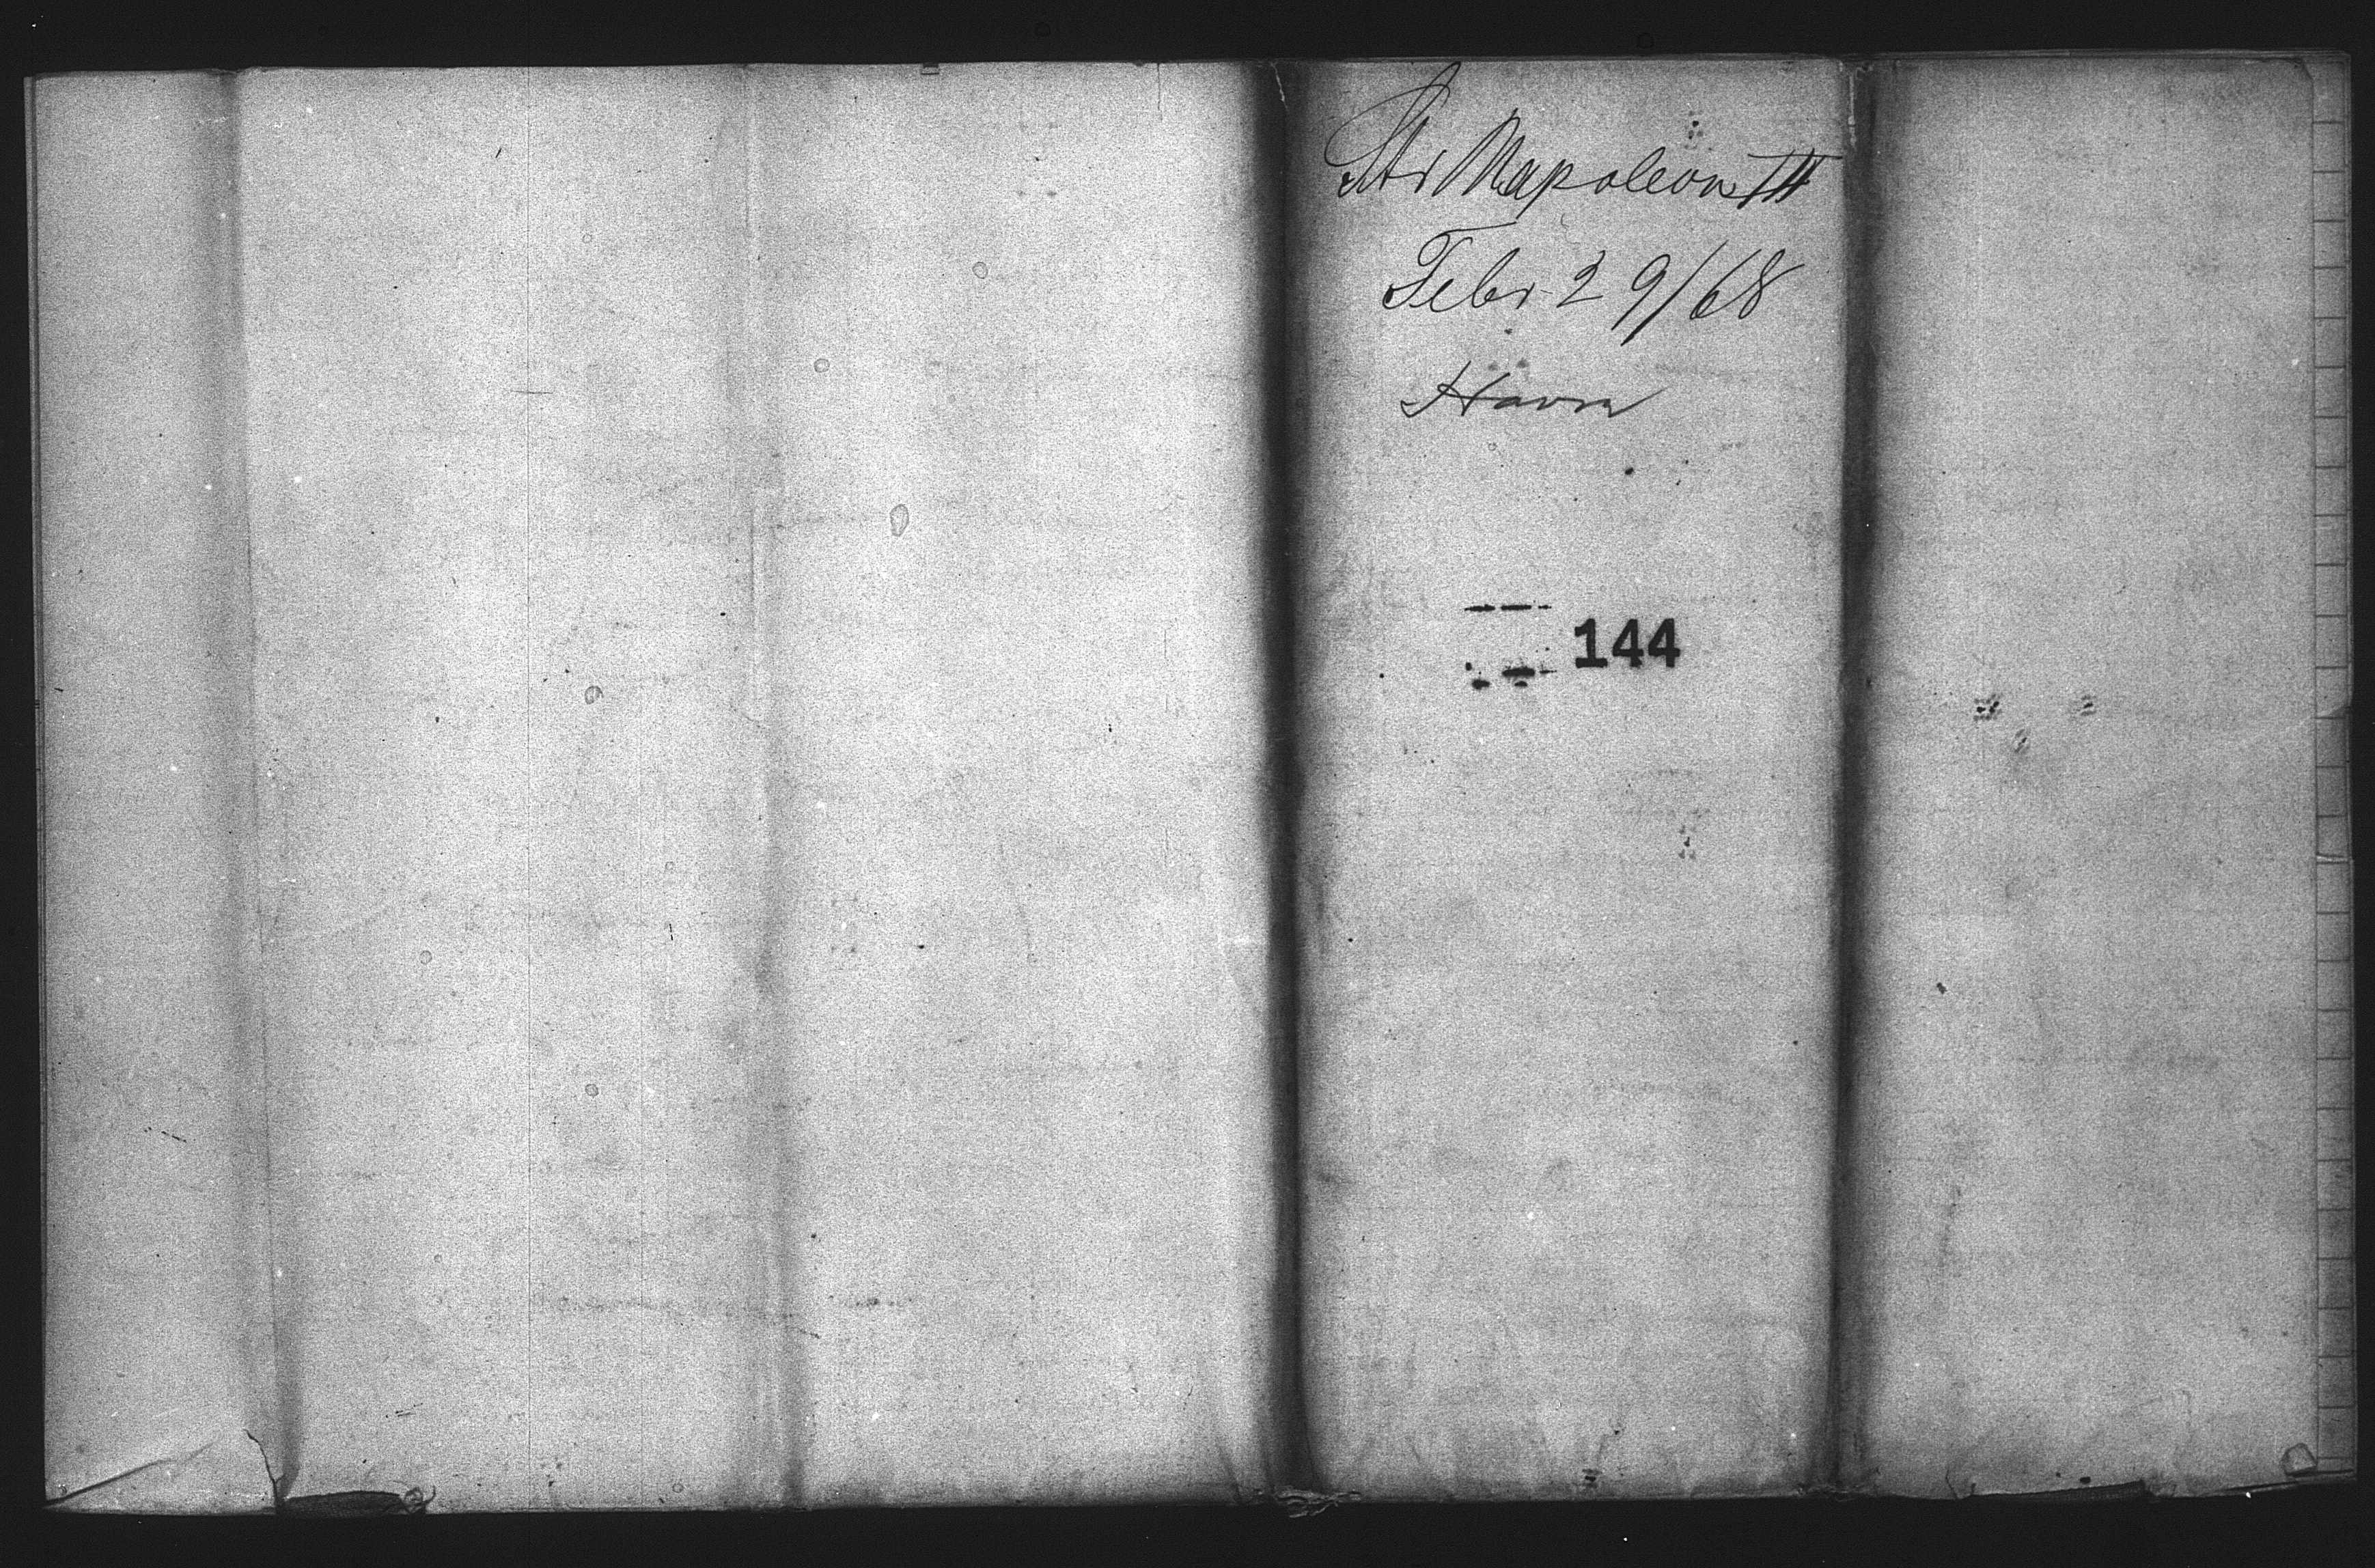 Str Napoleon III
Febr 29/68
Havre
144